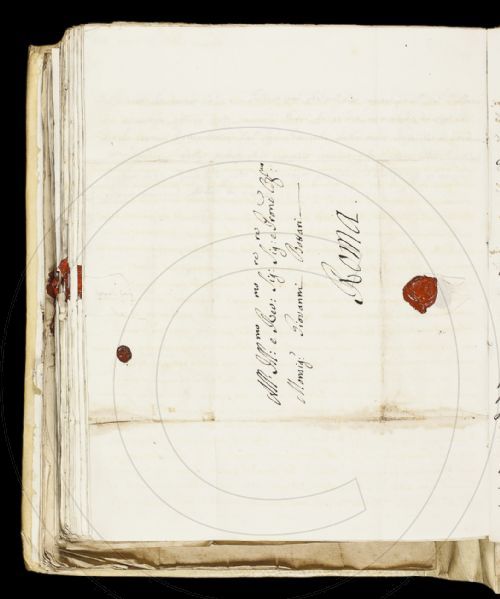 All' Ill:mo e Rev:mo Sig:re Sig:re e Prone Col:mo
Monsig:r Giovanni Bottari
Roma.